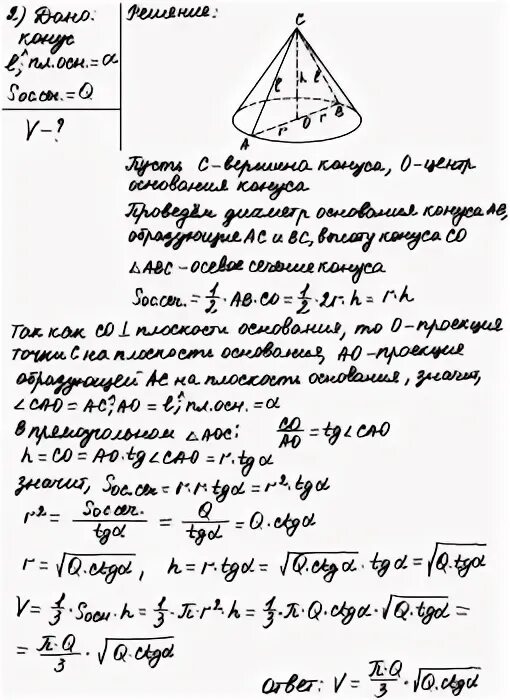 2.) Дано:
конус
l;^ пл.осн.=α
Sос.сеч.=Q
V-?
Решение:
C
l h l
r O r B
A
Пусть C-вершина конуса, O-центр
основания конуса
Проведём диаметр основания конуса AB,
образующие AC и BC, высоту конуса CO
△ABC-осевое сечение конуса
Sос.сеч.=1/2·AB·CO=1/2·2r·h=r·h
Так как CO⊥плоскости основания, то O-проекция
точки C на плоскости основания, AO-проекция
образующей AC на плоскость основания, значит,
∠CAO=AC;^AO=l;^пл.осн.=α
В прямоугольном △AOC: CO/AO=tg∠CAO
h=CO=AO·tg∠CAO=r·tgα
значит, Sос.сеч=r·r·tgα=r²·tgα
r²=Sос.сеч./tgα=Q/tgα=Q·ctgα
r=√Q·ctgα, h=r·tgα=√Q·ctgα·tgα=√Q·tgα
V=1/3·Sосн·h=1/3·π·r²·h=1/3·π·Q·ctgα·√Q·tgα=
=π·Q/3·√Q·ctgα
Ответ: V=π·Q/3·√Q·ctgα